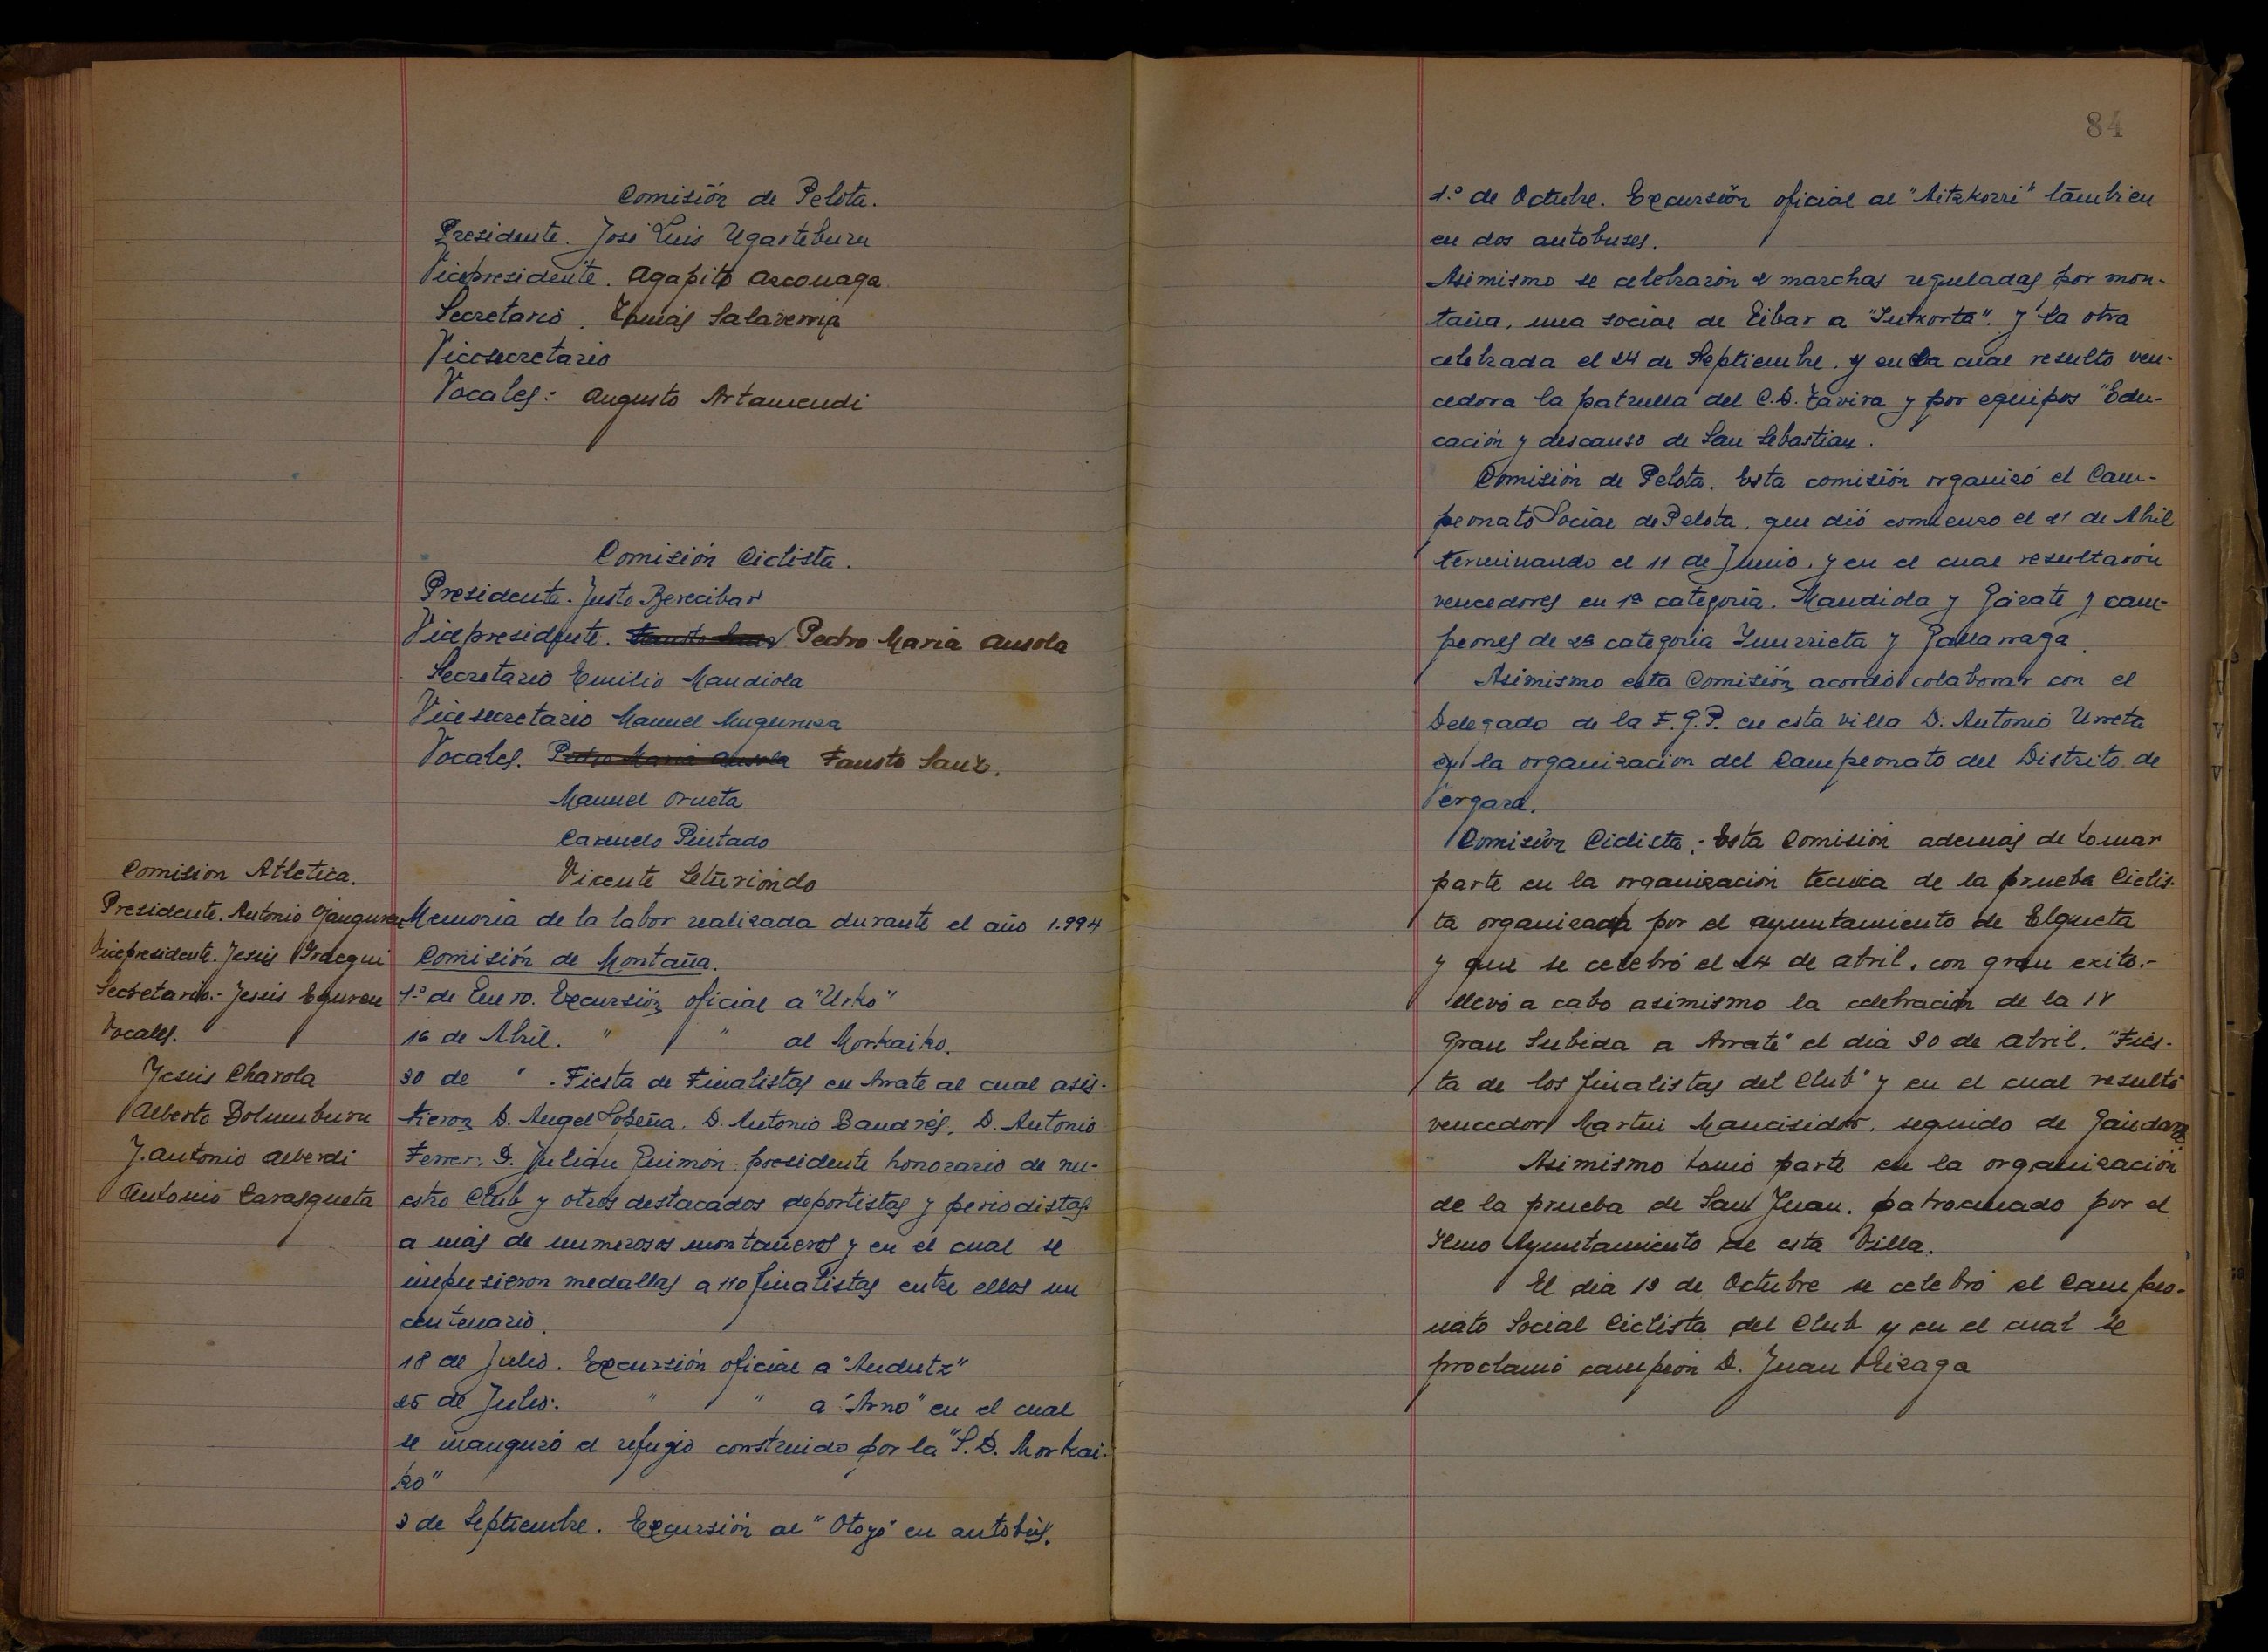 Comisión de Pelota.
Presidente. José Luis Ugarteburu
Vicepresidente. Agapito Arconaga
Secretario. Tomás Salaverria
Vicesecretario
Vocales: Augusto Artamendi
Comisión Ciclista.
Presidente. Justo Berecibar
Vicepresidente. Pedro Maria Ansola
Secretario Emilio Mandiola
Vicesecretario Manuel Muguruza
Vocales. Pedro Maria Ansola Fausto Sanz.
Manuel Orueta
Carmelo Pintado
Vicente Leturiondo
Comision Atletica.
Presidente. Antonio Ojanguren
Vicepresidente. Jesús
Secretario.- Jesús Eguren
Vocales.
Jesús Charola
Alberto Bolumburu
J. Antonio Alberdi
Antonio Sarasqueta
Memoria de la labor realizada durante el año 1.994
Comisión de Montaña.
1º de Enero. Excursión oficial a "Urko"
16 de Abril. " " al Morkaiko.
30 de " . Fiesta de Finalistas en Arrate al cual asis-
tieron D. Angel Sopeña. D. Antonio Bandrés. D. Antonio
Ferrer. D. Julián Guimón- presidente honorario de nu-
estro Club y otros destacados deportistas y periodistas
a más de numerosos montañeros y en el cual se
impusieron medallas a 110 finalistas entre ellos un
centenario.
18 de Julio. Excursión oficial a "Andutz"
25 de Julio. " " a "Arno" en el cual
se inauguró el refugio construido por la "S.D. Morkai-
ko"
3 de Septiembre. Excursión al "Otoyo" en autobús.
84
1.º de Octubre. Excursión oficial al "Aitzkorri" también
en dos autobuses.
Asimismo se celebrarón 2 marchas reguladas por mon-
taña, una social de Eibar a "Sutxorta". Y la otra
celebrada el 24 de Septiembre. y en la cual resulto ven-
cedora la patrulla del C.D. Tavira y por equipos "Edu-
cación y descanso de San Sebastian.
Comisión de Pelota. Esta comisión organizó el Cam-
peonato Social de Pelota, que dió comienzo el 21 de Abril
terminando el 11 de Junio, y en el cual resultarón
vencedores en 1ª categoría. Mandiola y Gárate y cam-
peones de 2ª categoria Iñurrieta y Gallarraga.
Asimismo esta Comisión acordó colaborar con el
Delegado de la F.G.P. en esta villa D. Antonio Urreta
en la organización del Campeonato del Distrito de
Vergara.
Comisión Ciclista.- Esta Comisión además de tomar
parte en la organización tecnica de la prueba Ciclis-
ta organizada por el ayuntamiento de Elgueta
y que se celebró el 24 de abril, con gran exito.-
llevó a cabo asimismo la celebración de la IV
Gran Subida a Arrate" el dia 30 de abril. "Fies-
ta de los finalistas del Club" y en el cual resultó
vencedor Martin Mancisidor, seguido de Gandara
Asimismo tomó parte en la organización
de la prueba de San Juan, patrocinado por el
Ilmo Ayuntamiento de esta Villa.
El dia 13 de Octubre se celebró el Campeo-
nato Social Ciclista del Club y en el cual se
proclamó campeón D. Juan